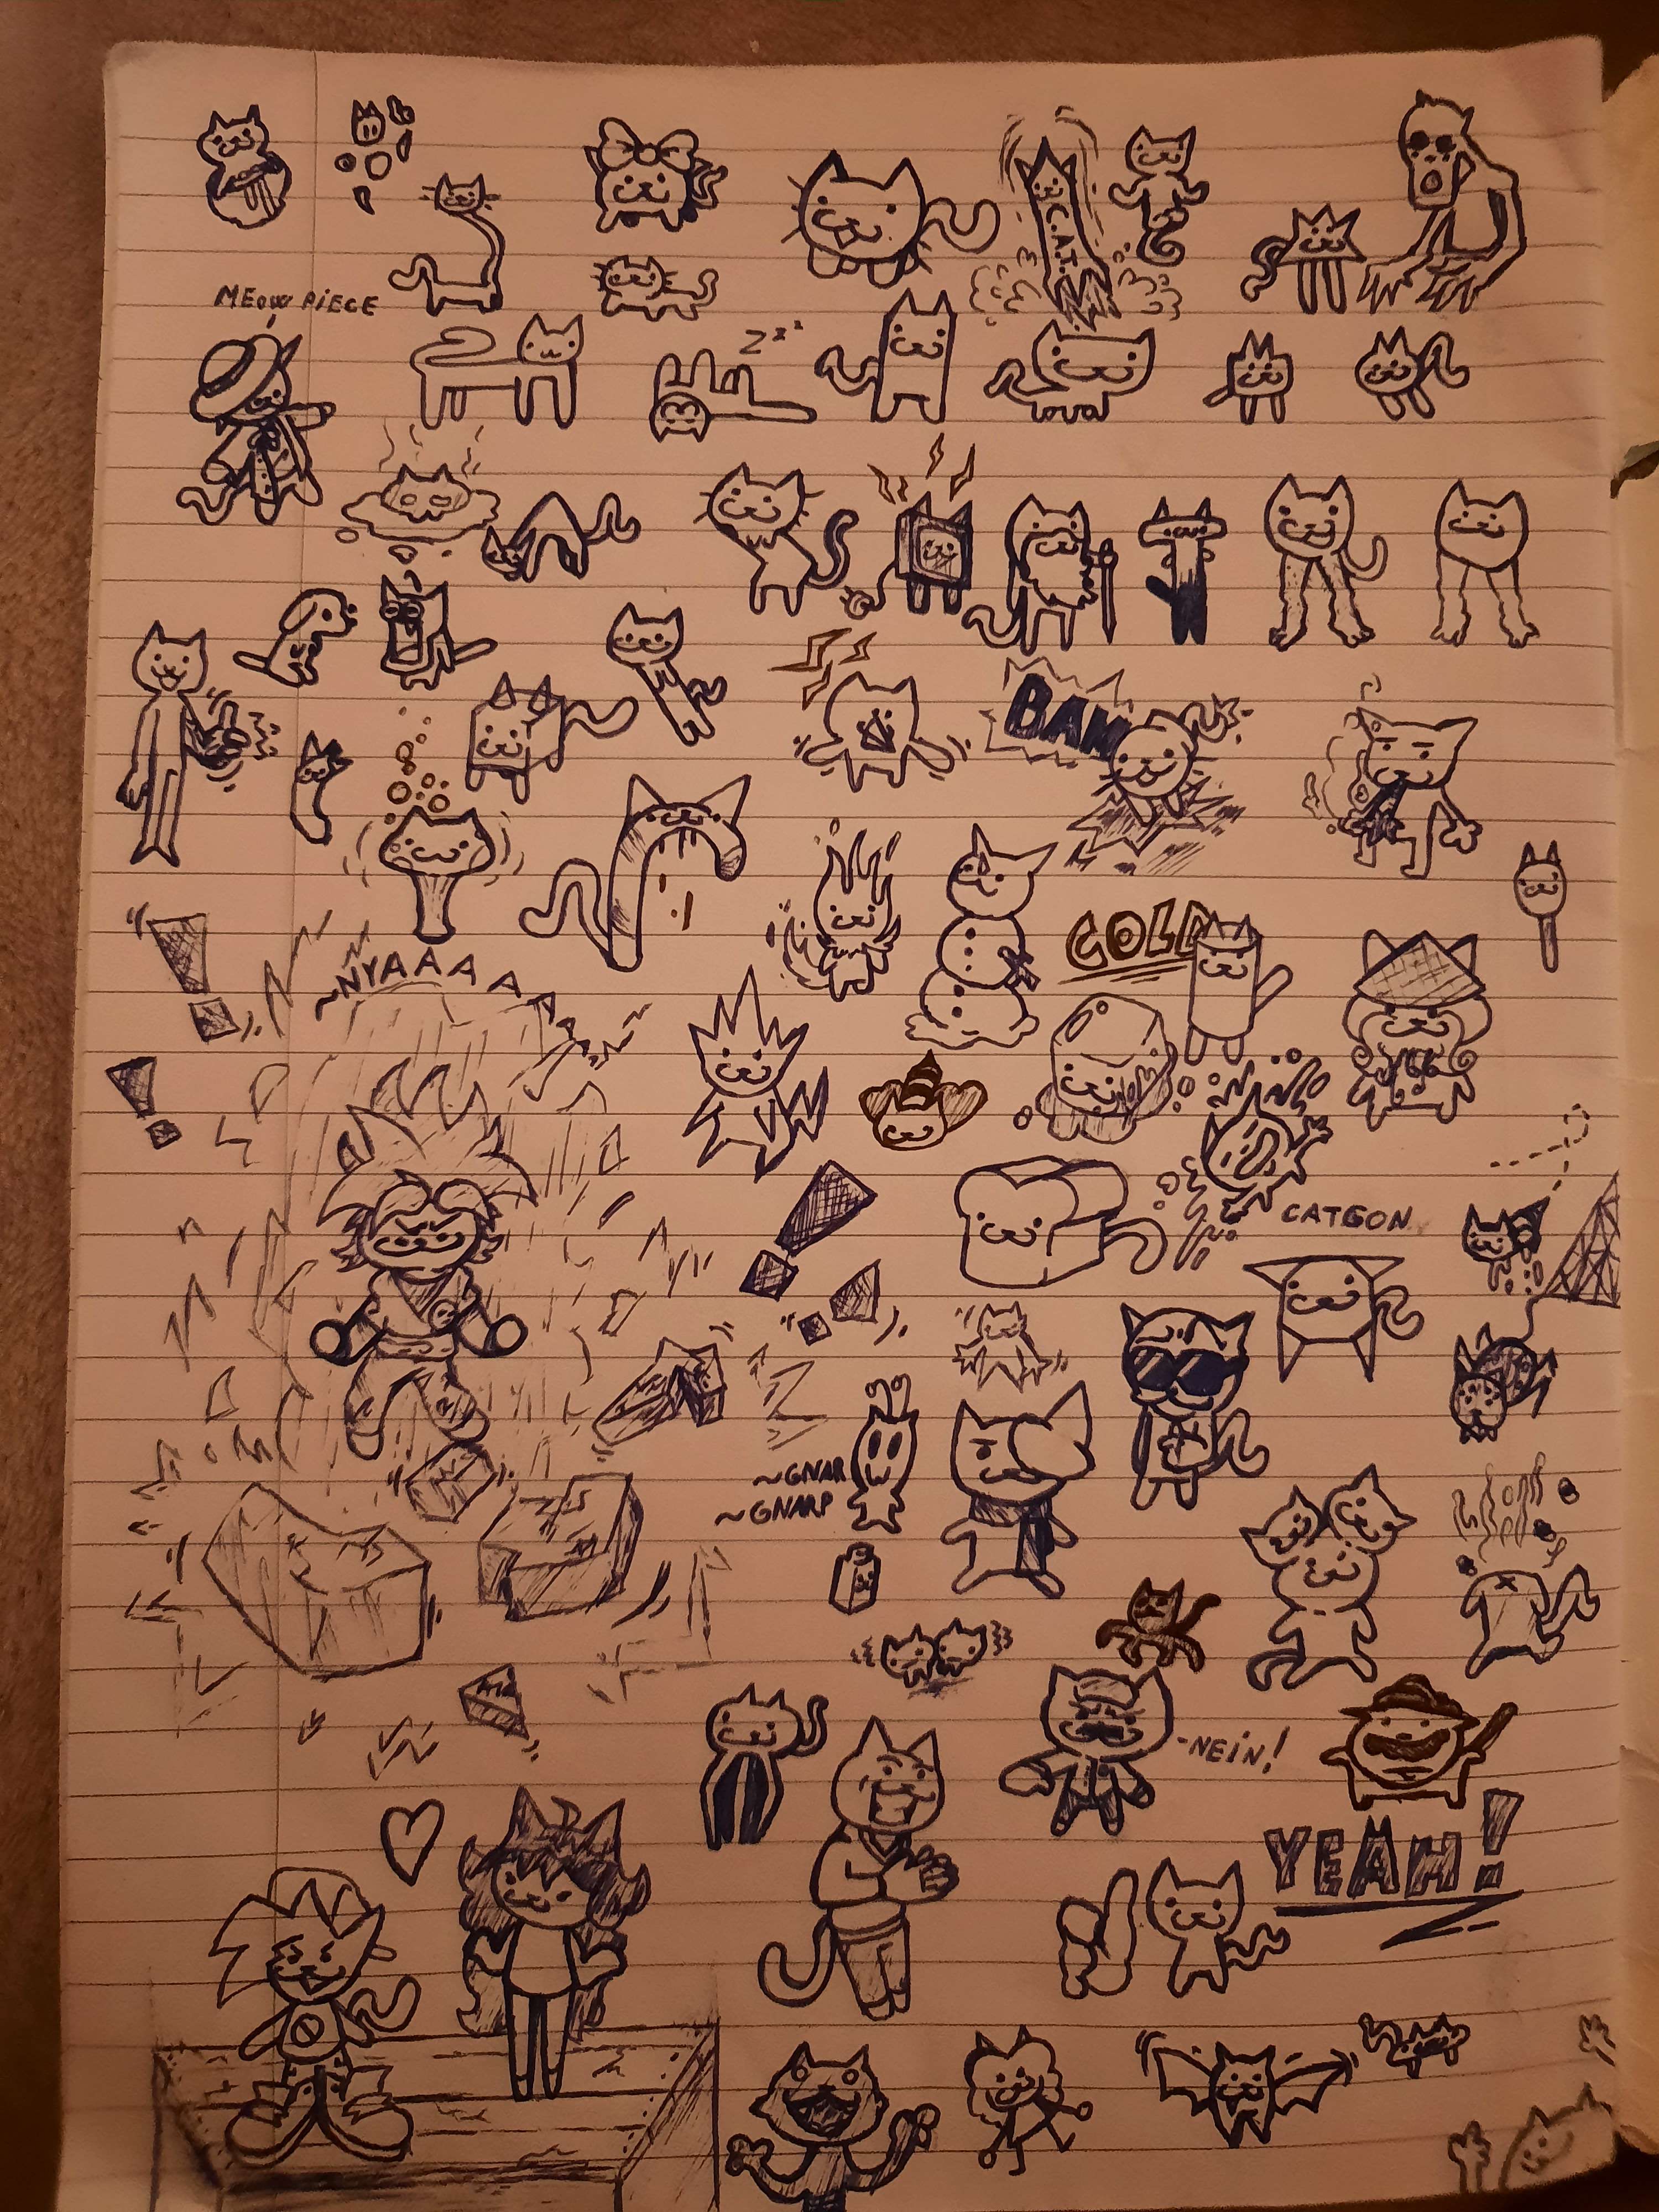 C.A.T.
MEOW PIECE
Zzz
BAM
COLD
~NYAAAAAAA
CATGON
~GNAR
~GNARP
-NEIN!
YEAH!